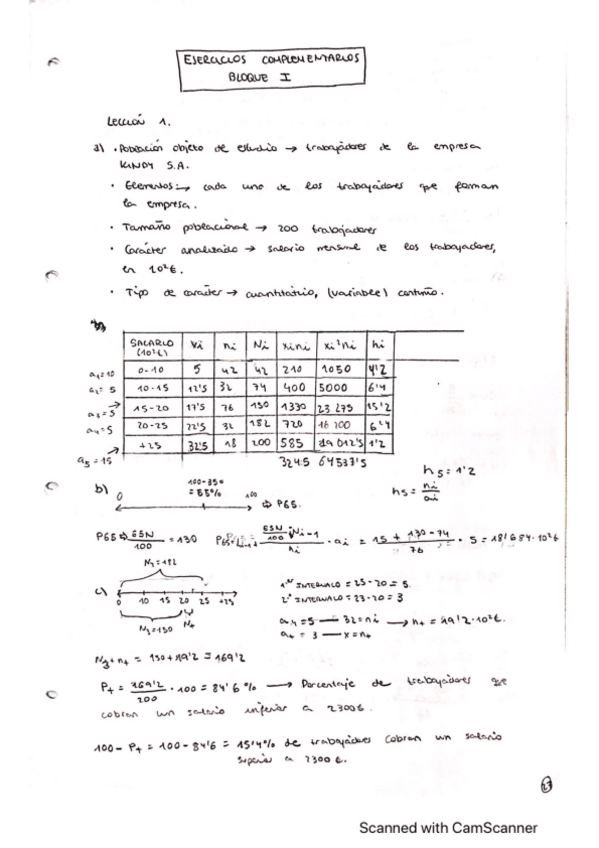 EJERCICIOS COMPLEMENTARIOS
BLOQUE I
Lección 1.
a) · Población objeto de estudio → trabajadores de la empresa
KINDY S.A.
· Elementos → cada uno de los trabajadores que forman
la empresa.
· Tamaño poblacional → 200 trabajadores
· Carácter analizado → salario mensual de los trabajadores,
en 10²€.
· Tipo de carácter → cuantitativo, (variable) continuo.
SALARIO (10²€) xi ni Ni xini xi²ni hi
a1=10 0-10 5 42 42 210 1050 4'2
a2=5 10-15 12'5 32 74 400 5000 6'4
a3=5 15-20 17'5 76 150 1330 23 275 15'2
a4=5 20-25 22'5 32 182 720 16 200 6'4
a5=15 +25 32'5 18 200 585 19 012'5 1'2
3245 64537'5
h5=1'2
h5= ni/ai
b) 0 100-35% = 65% 100 ⇒ P65.
P65 ⇒ 65N/100 = 130 · ai = 15 + 130-74/76 · 5 = 18'684·10²€
N4=182
c) 0 10 15 20 25 +25
N3=150 N+
1er INTERVALO = 25-20 = 5.
2º INTERVALO = 23-20 = 3
a4=5 — 32=ni → n+ = 19'2·10²€.
a+ = 3 — x=n+
N3+n+ = 150+19'2 = 169'2
P+ = 169'2/200 · 100 = 84'6 % → Porcentaje de trabajadores que
cobran un salario inferior a 2300€.
100- P+ = 100-84'6 = 15'4% de trabajadores cobran un salario
superior a 2300 €.
Scanned with CamScanner